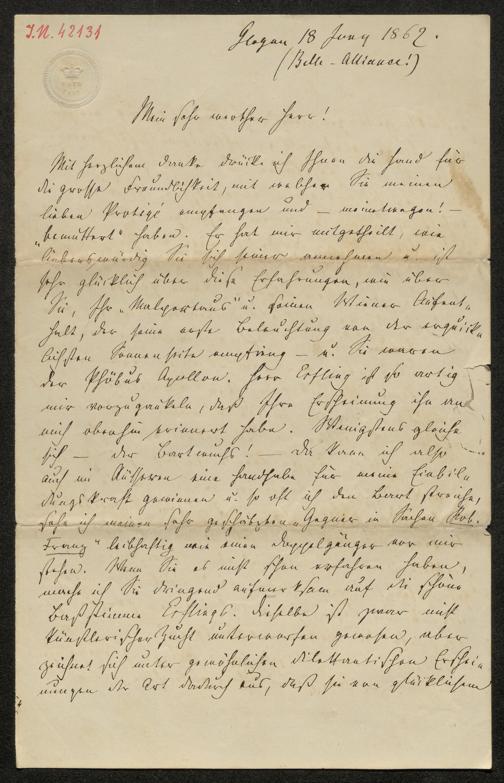 I.N. 42131
Glogau 18 Juny 1862.
(Belle-Alliance!)
Mein sehr werther Herr!
Mit herzlichem Danke drücke ich Ihnen die Hand für
die grosse Freundlichkeit, mit welcher Sie meinen
lieben Protégé empfangen und — meinetwegen! —
„bemuttert" haben. Er hat mir mitgetheilt, wie
liebenswürdig Sie Sich seiner annehmen u. ist
sehr glücklich über diese Erfahrungen, wie über
Sie, Ihr „Malepartaus" u. seinen Wiener Aufent-
halt, der seine erste Beleuchtung von der erquick-
lichsten Sonnenseite empfing — u. Sie waren
der Phöbus Apollon. Herr ist so artig
mir vorzugaukeln, daß Ihre Erscheinung ihn an
mich obenhin erinnert habe. Wenigstens gleiche
sich — der Bartwuchs! — da kann ich also
auch im Äußeren eine Handhabe für meine Einbil-
dungskraft gewinnen u. so oft ich den Bart streiche,
sehe ich meinen sehr geschätzten „Gegner in Sachen Rob.
Franz" leibhaftig wie einen Doppelgänger vor mir
stehen. Wenn Sie es nicht schon erfahren haben,
mache ich Sie dringend aufmerksam auf die schöne
Baßstimme . Dieselbe ist zwar nicht
künstlerischer Zucht unterworfen gewesen, aber
zeichnet sich unter gewöhnlichen dilettantischen Erschei-
nungen der Art dadurch aus, daß sie von glücklichem